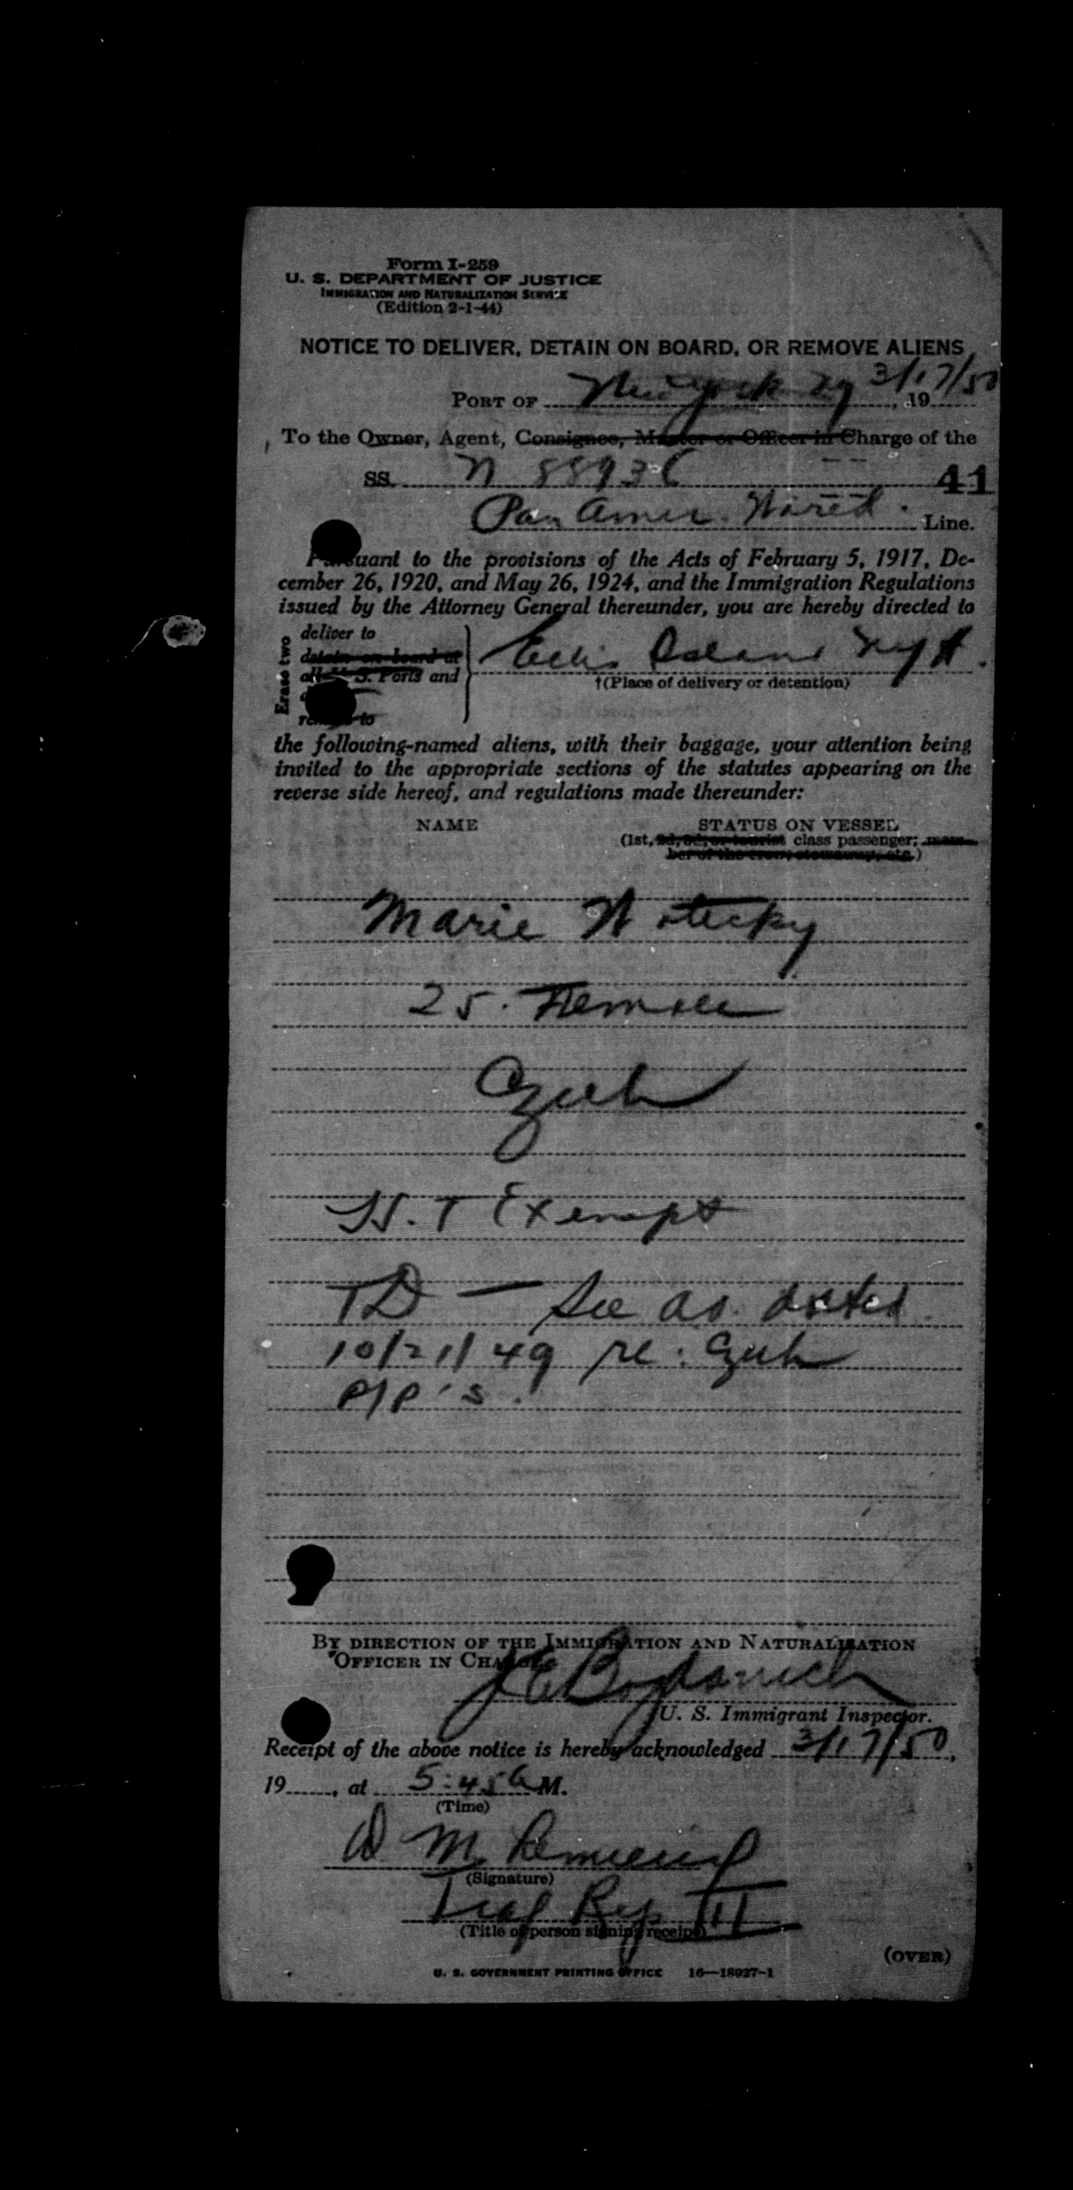 Form I-259
U. S. DEPARTMENT OF JUSTICE
IMMIGRATION AND NATURALIZATION SERVICE
(Edition 2-1-44)
NOTICE TO DELIVER, DETAIN ON BOARD, OR REMOVE ALIENS
PORT OF New York NY 3/17/50, 19
To the Owner, Agent, Consignee, Master or Officer in Charge of the
SS. N 88936 41
Pan Amer. Line.
Pursuant to the provisions of the Acts of February 5, 1917, De-
cember 26, 1920, and May 26, 1924, and the Immigration Regulations
issued by the Attorney General thereunder, you are hereby directed to
Erase two
deliver to
detain on board at
all U. S. Ports and
remove to
Ellis Island
†(Place of delivery or detention)
the following-named aliens, with their baggage, your attention being
invited to the appropriate sections of the statutes appearing on the
reverse side hereof, and regulations made thereunder:
NAME STATUS ON VESSEL
(1st, 2d, 3d, or tourist class passenger; mem-
ber of the crew; stowaway, etc.)
Marie
25. Female
Czech
H.T Exempt
TD — See dated
10/21/49 re: Czech
P/P's.
BY DIRECTION OF THE IMMIGRATION AND NATURALIZATION
OFFICER IN CHARGE
U. S. Immigrant Inspector.
Receipt of the above notice is hereby acknowledged 3/17/50,
19......, at 5:45 A M.
(Time)
D M
(Signature)
Traf Rep III
(Title of person signing receipt)
(OVER)
U. S. GOVERNMENT PRINTING OFFICE 16—18927-1